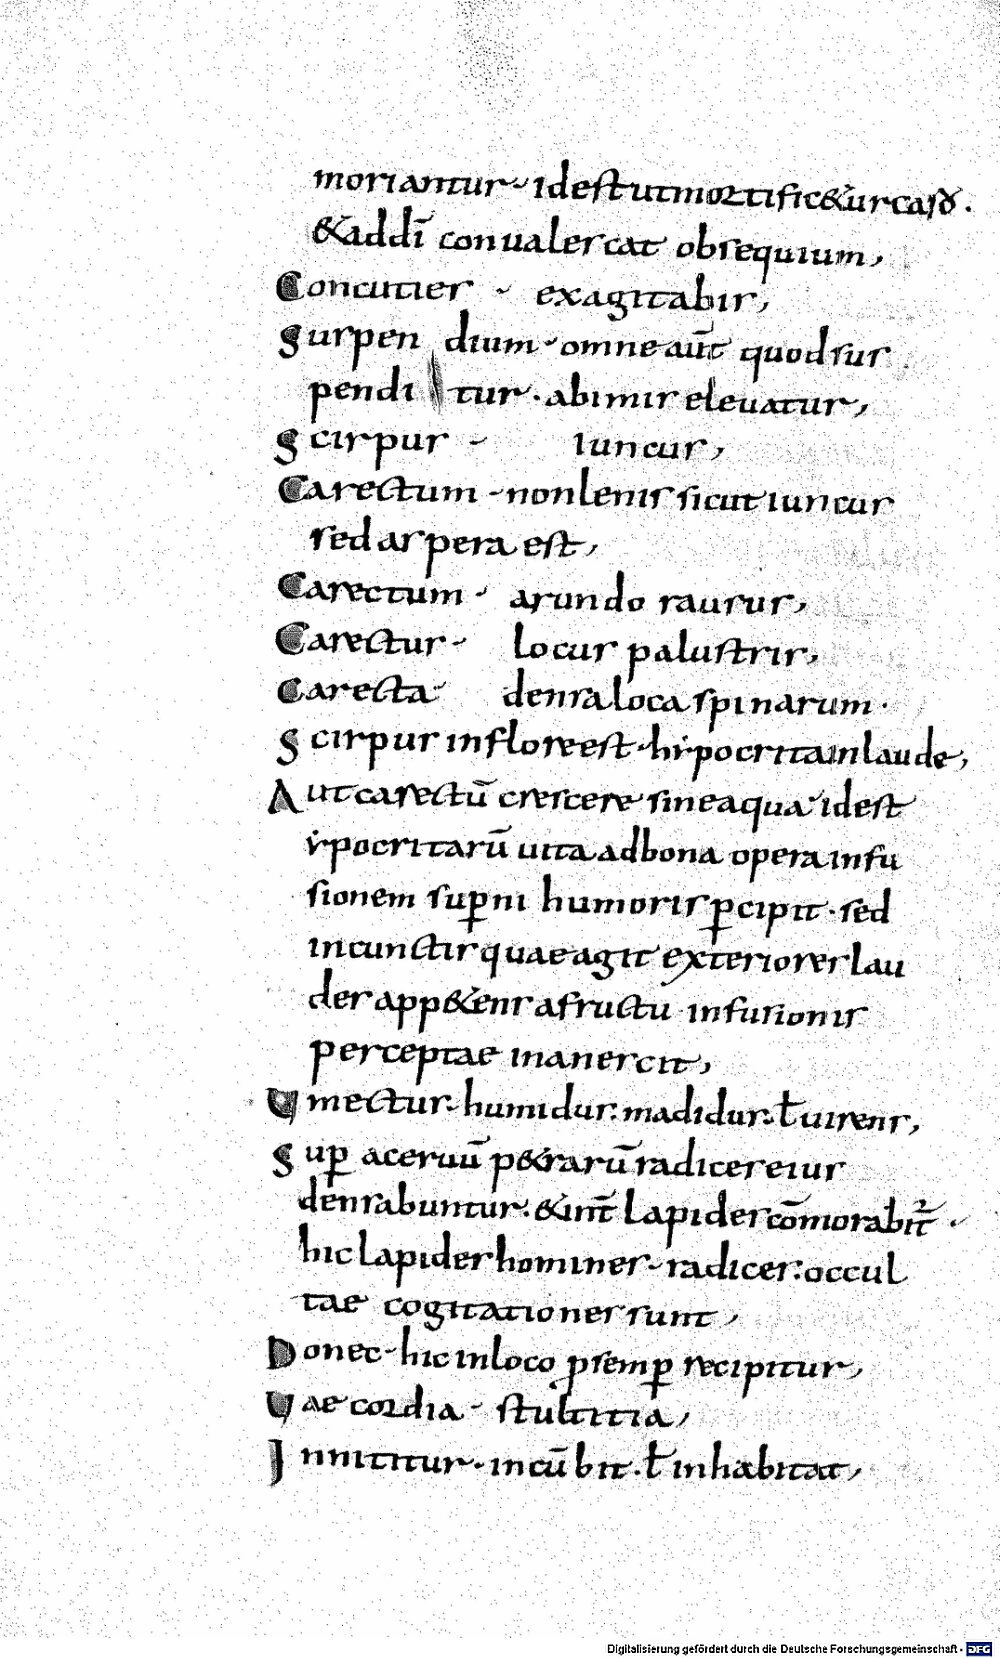 moriantur · id est ut mortific&ur caro ·
& addī convalescat obsequium,
Concutier · exagitabis,
Suspendium · omne aūt quod sus
penditur · ab imis elevatur,
Scirpus · iuncus,
Carectum · non lenis sicut iuncus
sed aspera est,
Carectum · arundo rausus,
Carectus · locus palustris,
Carecta densa loca spinarum ·
Scirpus in flore est · hẏpocrita in laude,
Aut carectū crescere sine aqua · id est
ẏpocritarū vita ad bona opera infu
sionem suꝑni humoris ꝑcipit · sed
in cunctis quae agit exteriores lau
des app&ens a fructu infusionis
perceptae inanescit,
Umectus · humidus · madidus · ł virens,
Suꝑ acervū p&rarū radices eius
densabuntur · & int̄ lapides cōmorabit᷑ ·
hic lapides homines · radices · occul
tae cogitationes sunt,
Donec · hic in loco ꝓ semꝑ recipitur,
Vaecordia · stultitia,
Innititur · incūbit · ł inhabitat,
Digitalisierung gefördert durch die Deutsche Forschungsgemeinschaft - DFG